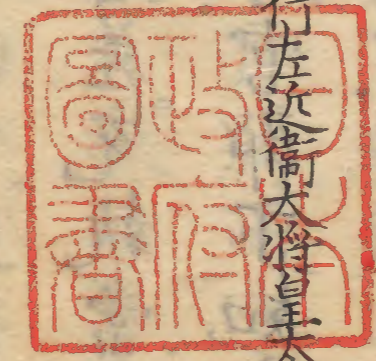 行左近衛大将皇太
日本
政府
圖書